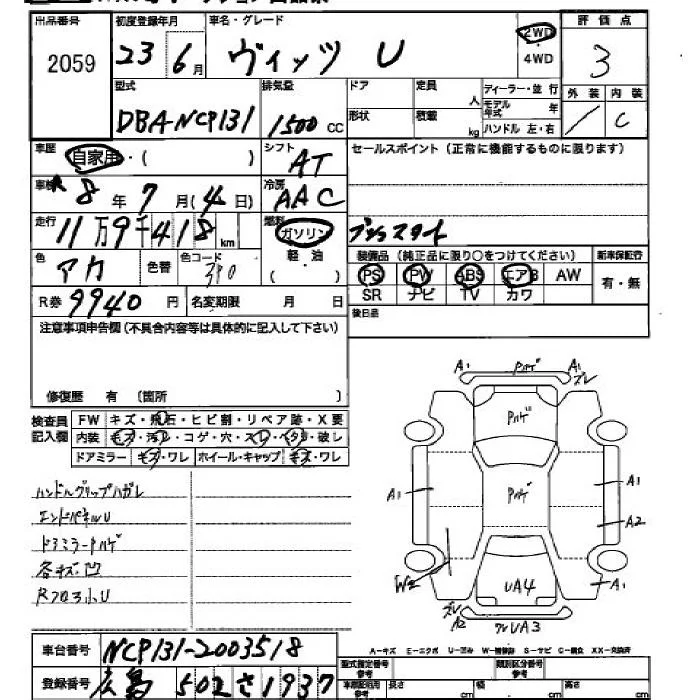 出品番号 初度登録年月 車名・グレード 評価点
2059 23 6月 ヴィッツ U 2WD・4WD 3
型式 排気量 ドア 定員 人 ディーラー・並行 外装 内装
DBA-NCP131 1500 CC 形状 積載 kg モデル年式 年 ハンドル 左・右 / C
車歴 自家用・( ) シフト AT セールスポイント(正常に機能するものに限ります)
車検 8年7月(4日) 冷房 AAC
走行 11万9千418km 燃料 ガソリン 軽・油 ( ) プッシュスタート
色 アカ 色替 色コード 3P0 装備品(純正品に限り○をつけてください) 新車保証書
PS PW ABS エアB AW 有・無
R券 9940円 名変期限 月 日 SR ナビ TV カワ
注意事項申告欄(不具合内容等は具体的に記入して下さい) 後日品
修復歴 有(箇所 )
検査員記入欄 FW キズ・飛石・ヒビ割・リペア跡・X要
内装 キズ・汚レ・コゲ・穴・スレ・ヘタリ・破レ
ドアミラー キズ・ワレ ホイール・キャップ キズ・ワレ
A1 Pハゲ A1 ズレ
Pハゲ
A1 Pハゲ A1
A2
W2 UA4 A1
ズレ A2 UA3
ハンドルグリップハガレ
エンドパネルU
ドアミラーPハゲ
各キズ・凹
Rフロア小U
A-キズ E-エクボ U-凹み W-補修跡 S-サビ C-腐食 XX-交換済
車台番号 NCP131-2003518 型式指定番号 類別区分番号
登録番号 広島 502 さ 1937 長さ cm 幅 cm 高さ cm